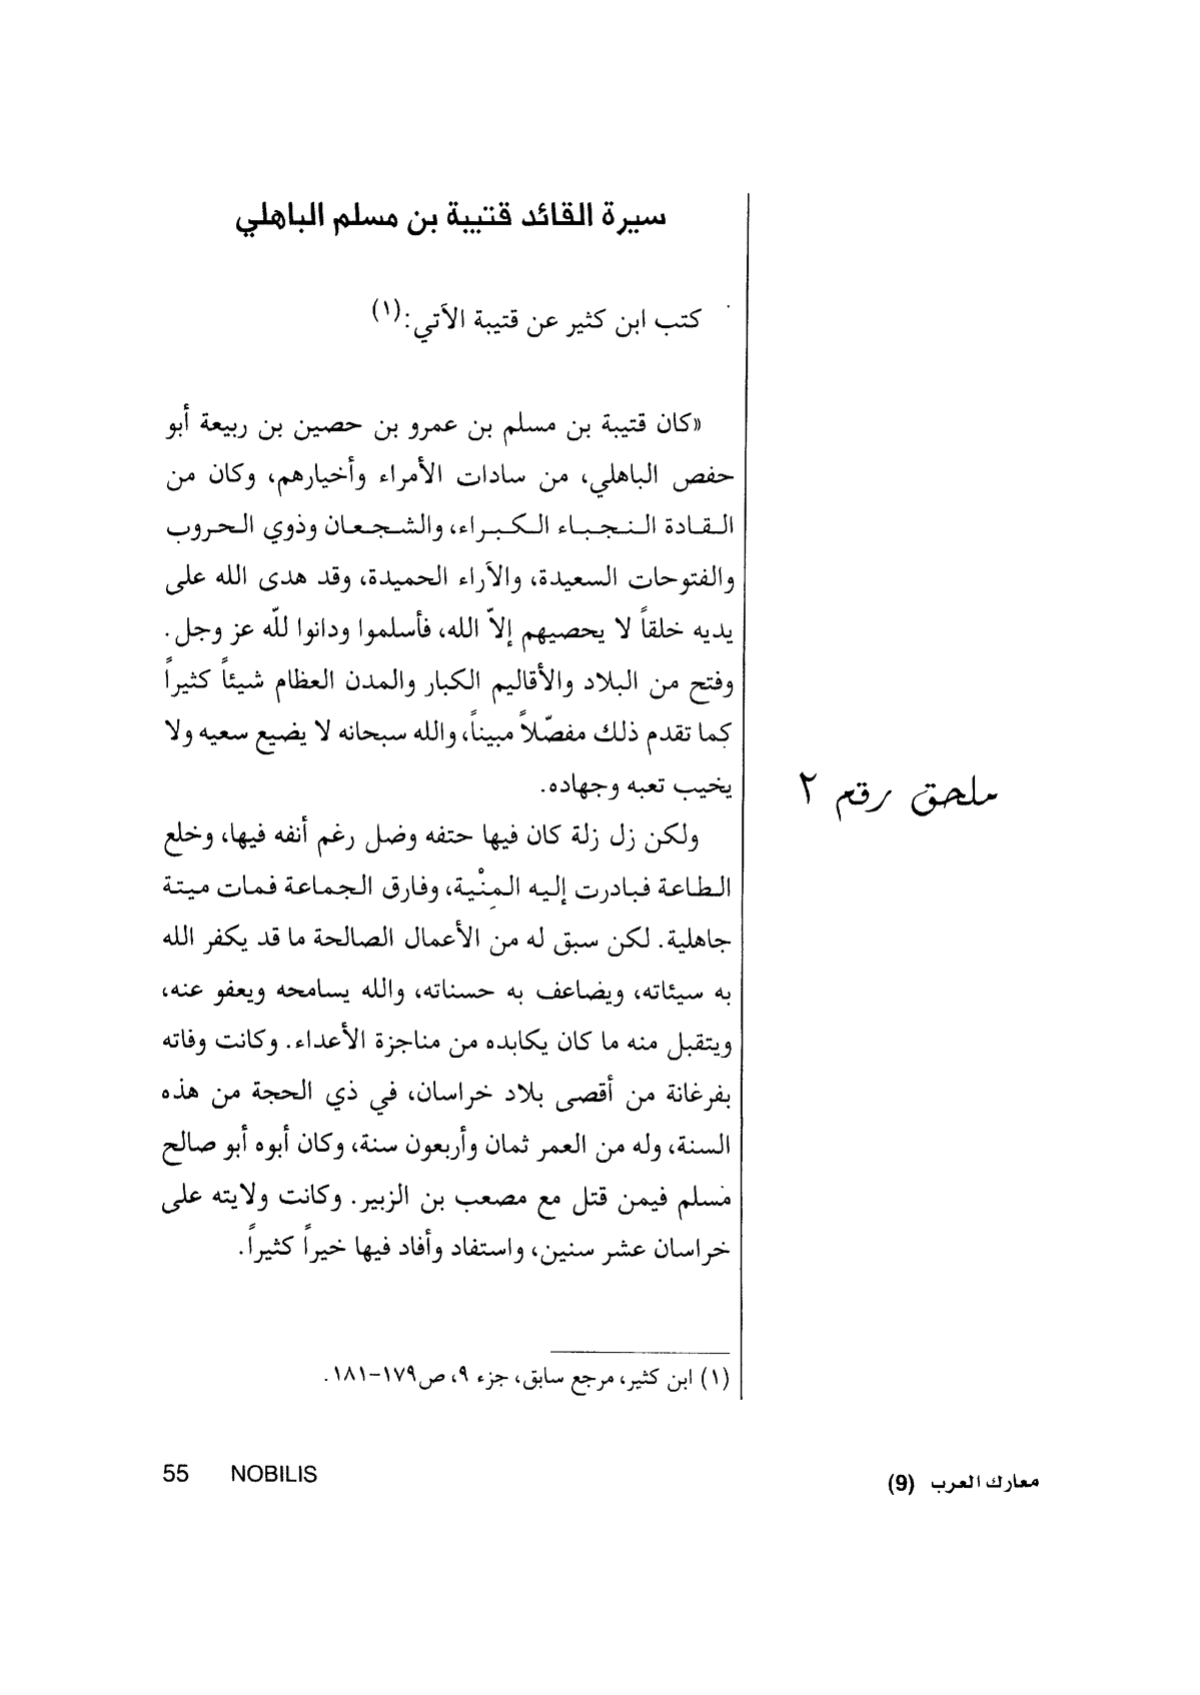 سيرة القائد قتيبة بن مسلم الباهلي
كتب ابن كثير عن قتيبة الآتي:(١)
«كان قتيبة بن مسلم بن عمرو بن حصين بن ربيعة أبو
حفص الباهلي، من سادات الأمراء وأخيارهم، وكان من
القادة النجباء الكبراء، والشجعان وذوي الحروب
والفتوحات السعيدة، والآراء الحميدة، وقد هدى الله على
يديه خلقاً لا يحصيهم إلاّ الله، فأسلموا ودانوا للّه عز وجل.
وفتح من البلاد والأقاليم الكبار والمدن العظام شيئاً كثيراً
كما تقدم ذلك مفصّلاً مبيناً، والله سبحانه لا يضيع سعيه ولا
يخيب تعبه وجهاده.
ولكن زل زلة كان فيها حتفه وضل رغم أنفه فيها، وخلع
الطاعة فبادرت إليه المِنْية، وفارق الجماعة فمات ميتة
جاهلية. لكن سبق له من الأعمال الصالحة ما قد يكفر الله
به سيئاته، ويضاعف به حسناته، والله يسامحه ويعفو عنه،
ويتقبل منه ما كان يكابده من مناجزة الأعداء. وكانت وفاته
بفرغانة من أقصى بلاد خراسان، في ذي الحجة من هذه
السنة، وله من العمر ثمان وأربعون سنة، وكان أبوه أبو صالح
مسلم فيمن قتل مع مصعب بن الزبير. وكانت ولايته على
خراسان عشر سنين، واستفاد وأفاد فيها خيراً كثيراً.
ملحق رقم ٢
(١) ابن كثير، مرجع سابق، جزء ٩، ص١٧٩-١٨١.
معارك العرب (9)
55 NOBILIS